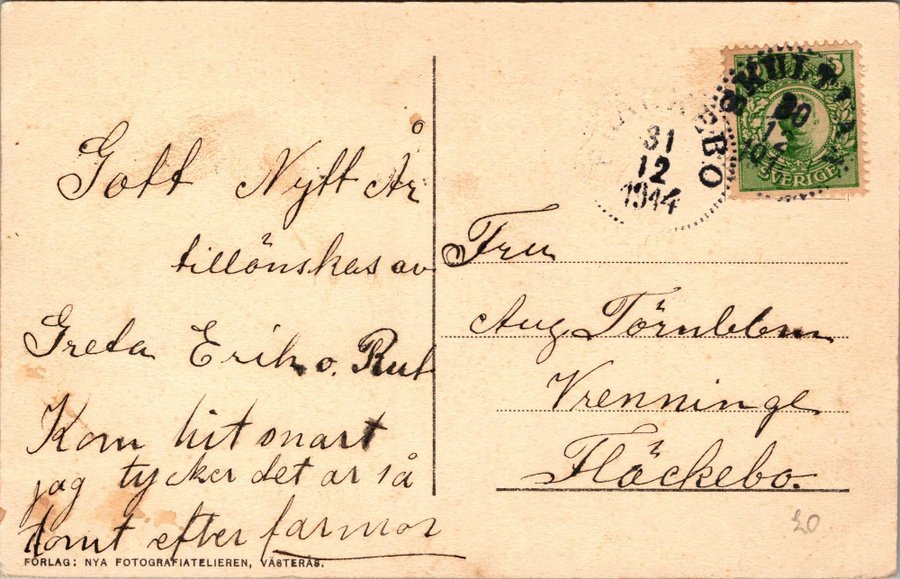 Gott Nytt År
tillönskas av
Greta Erik o. Rut
Kom hit snart
jag tycker det är så
tomt efter farmor
FÖRLAG: NYA FOTOGRAFIATELIEREN, VÄSTERÅS.
31
12
1944
30
5
SVERIGE
Fru
Aug Törnblom
Vrenninge
Fläckebo.
20